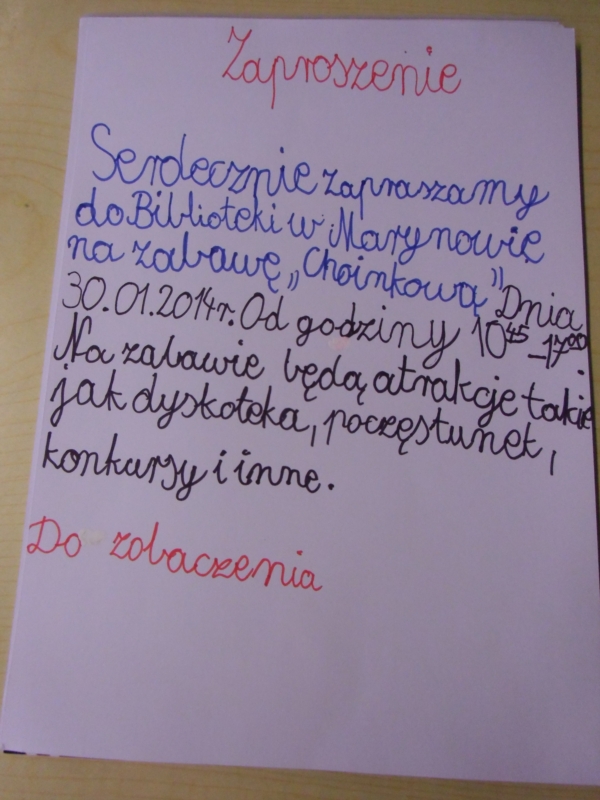 Zaproszenie
Serdecznie zapraszamy
do Biblioteki w Marynowie
na zabawę „Choinkową" Dnia
30.01.2014r. Od godziny 10⁴⁵-17⁰⁰.
Na zabawie będą atrakcje takie
jak dyskoteka, poczęstunek,
konkursy i inne.
Do zobaczenia